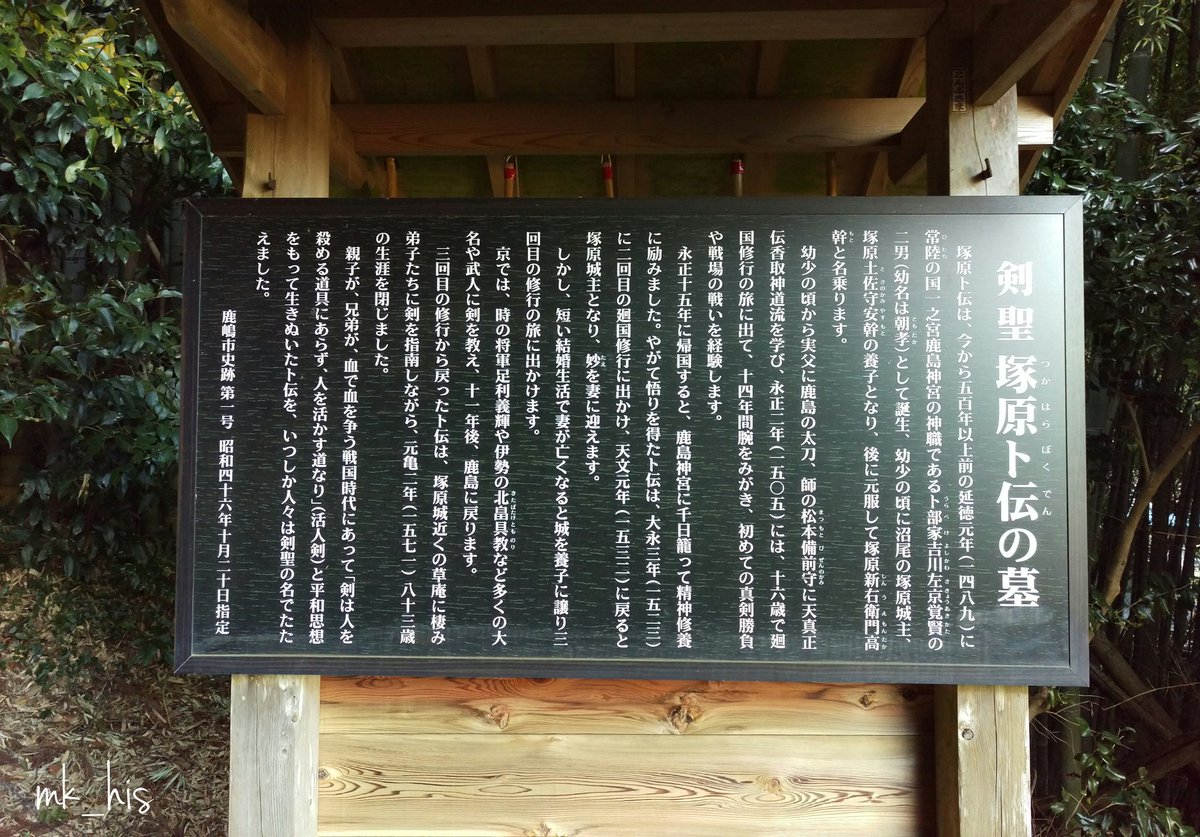 剣聖 塚原卜伝の墓
つか はら ぼく でん
塚原卜伝は、今から五百年以上前の延徳元年(一四八九)に
常陸の国一之宮鹿島神宮の神職である卜部家吉川左京覚賢の
ひたち うらべ け よしかわ さきょうあきかた
二男(幼名は朝孝)として誕生、幼少の頃に沼尾の塚原城主、
ともたか
塚原土佐守安幹の養子となり、後に元服して塚原新右衛門高
とさのかみ やすもと しんうえもんたか
幹と名乗ります。
もと
幼少の頃から実父に鹿島の太刀、師の松本備前守に天真正
まつもと び ぜんのかみ
伝香取神道流を学び、永正二年(一五〇五)には、十六歳で廻
国修行の旅に出て、十四年間腕をみがき、初めての真剣勝負
や戦場の戦いを経験します。
永正十五年に帰国すると、鹿島神宮に千日籠って精神修養
に励みました。やがて悟りを得た卜伝は、大永三年(一五二三)
に二回目の廻国修行に出かけ、天文元年(一五三二)に戻ると
塚原城主となり、妙を妻に迎えます。
たえ
しかし、短い結婚生活で妻が亡くなると城を養子に譲り三
回目の修行の旅に出かけます。
京では、時の将軍足利義輝や伊勢の北畠具教など多くの大
きたばたけとものり
名や武人に剣を教え、十一年後、鹿島に戻ります。
三回目の修行から戻った卜伝は、塚原城近くの草庵に棲み
弟子たちに剣を指南しながら、元亀二年(一五七一)八十三歳
の生涯を閉じました。
親子が、兄弟が、血で血を争う戦国時代にあって「剣は人を
殺める道具にあらず、人を活かす道なり(活人剣)と平和思想
をもって生きぬいた卜伝を、いつしか人々は剣聖の名でたた
えました。
鹿嶋市史跡 第一号 昭和四十六年十月二十日指定
mk_his